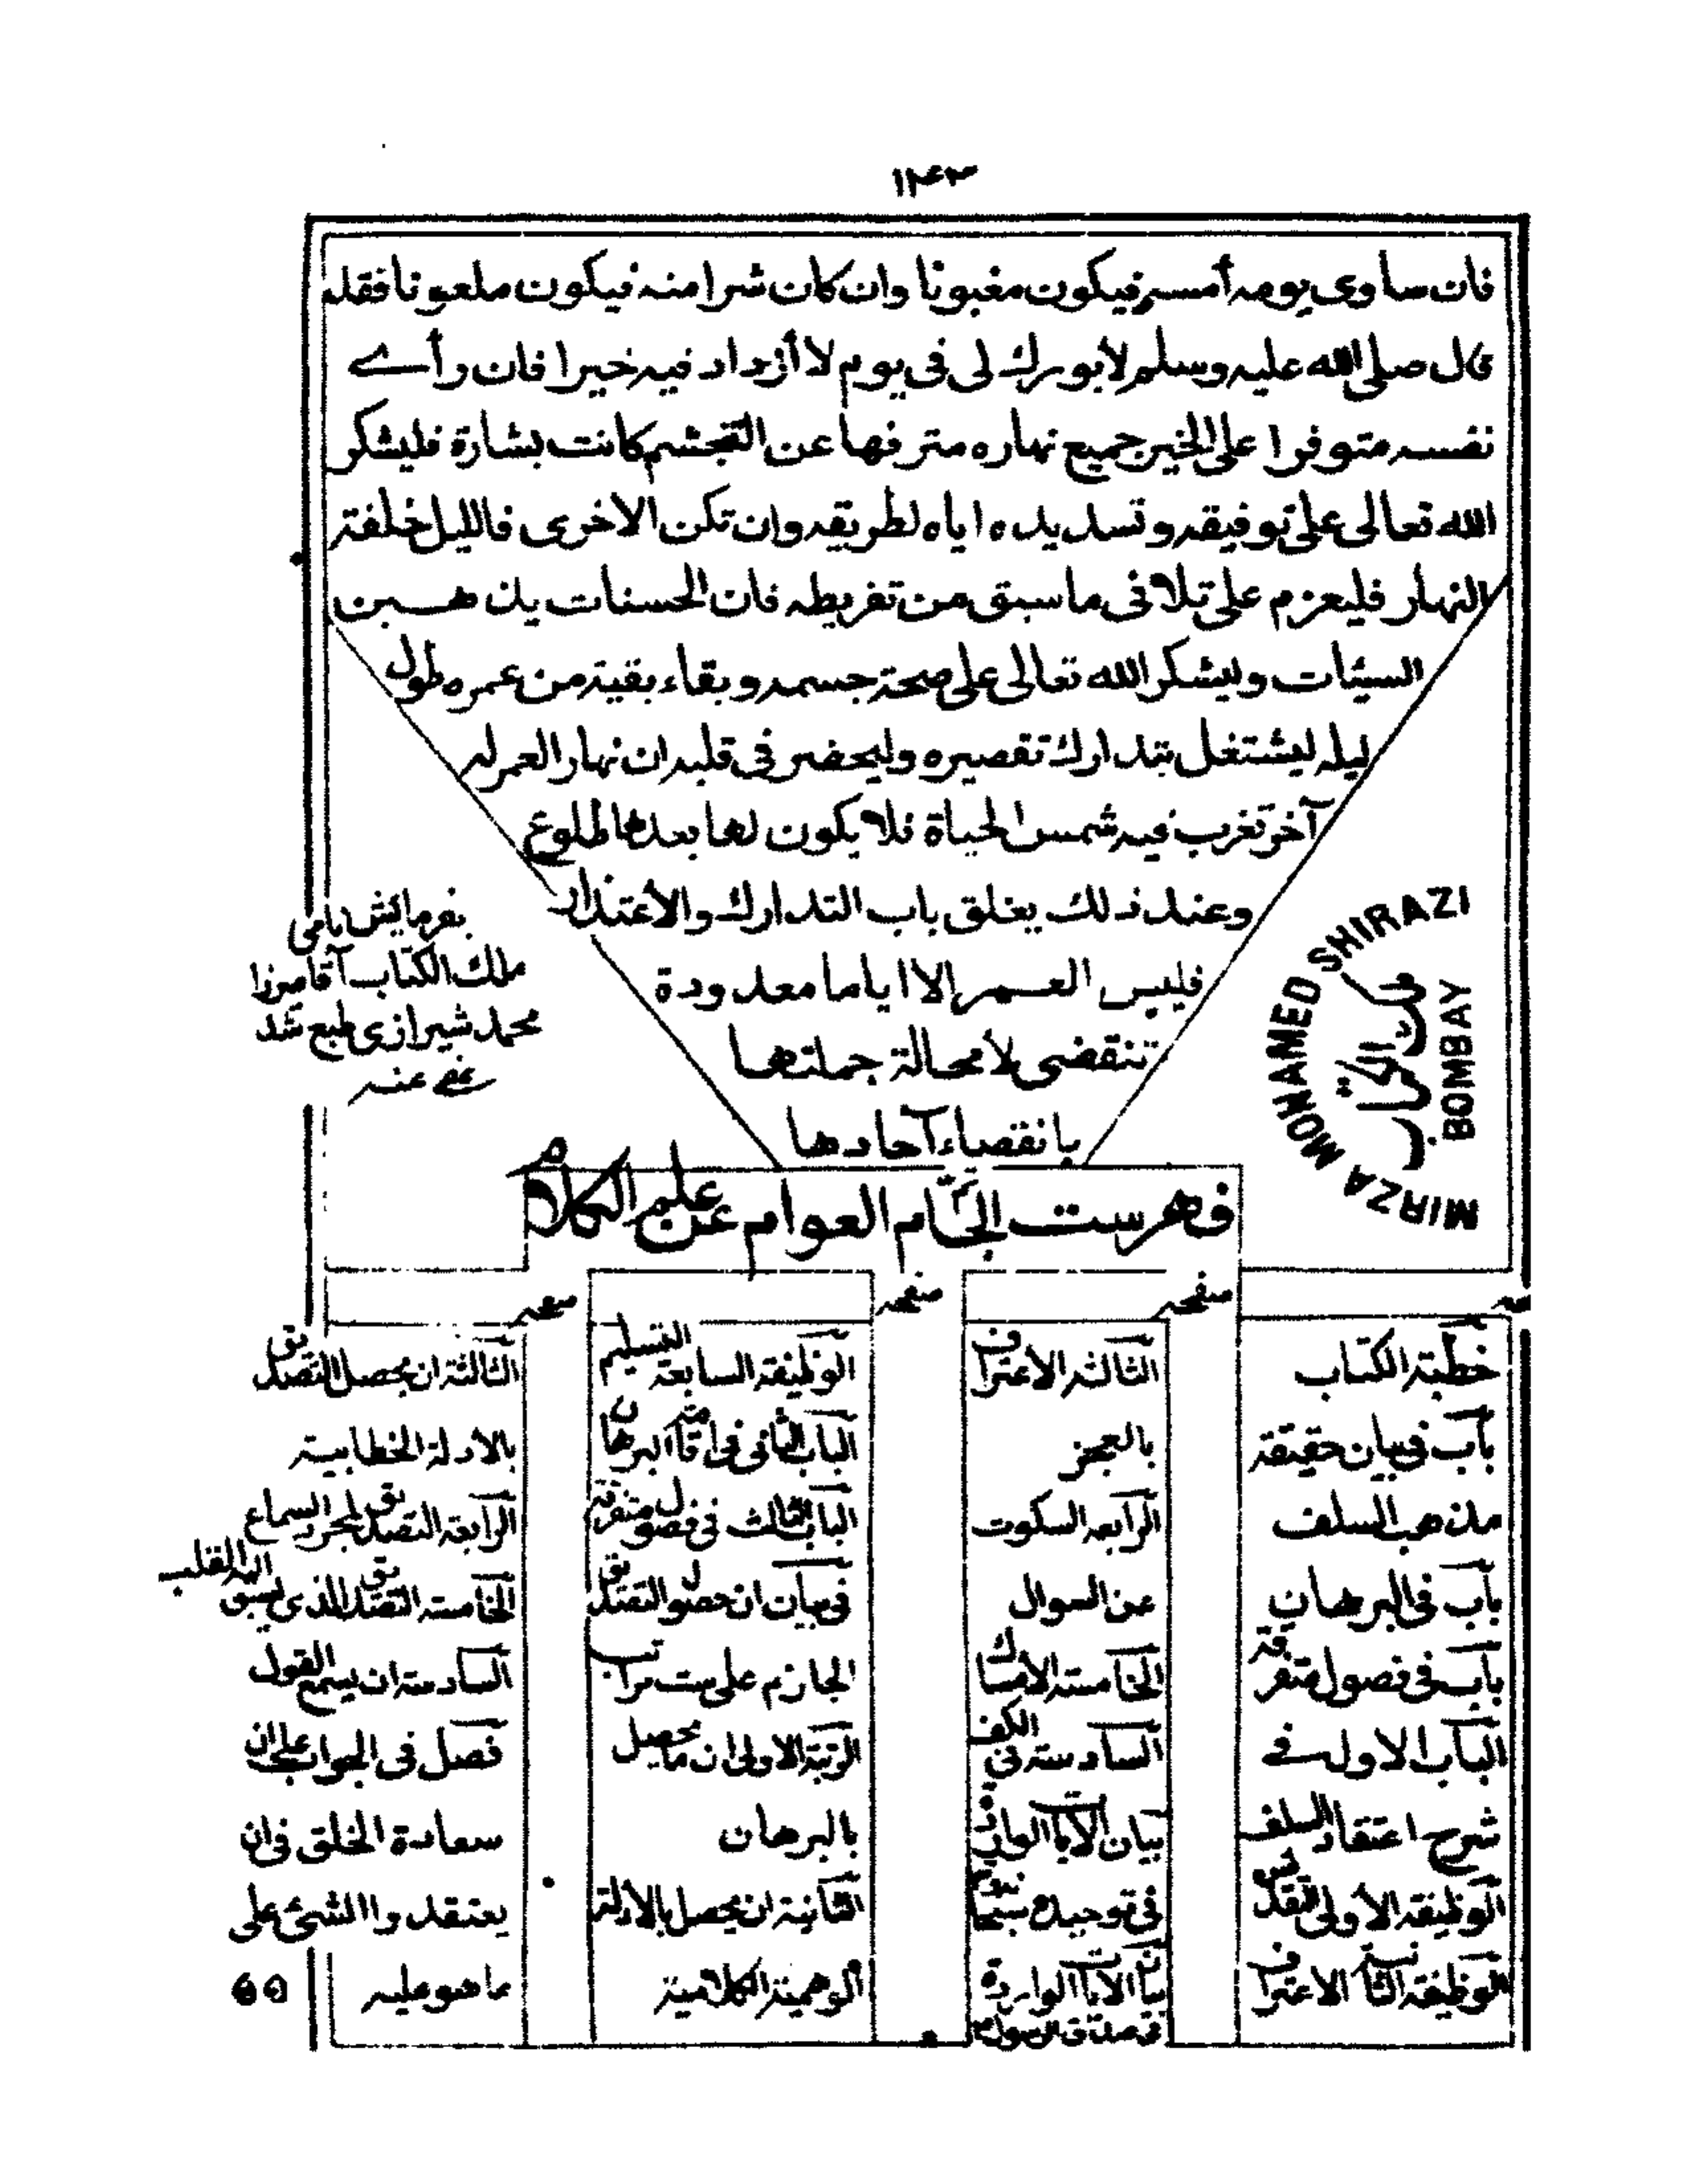 ١٤٣
فان ساوى يومه أمسه فيكون مغبونا وان كان شرا منه فيكون ملعونا فقد
قال صلى الله عليه وسلم لا بورك لى فى يوم لا أزداد فيه خيرا فان رأے
نفسه متوفرا على الخير جميع نهاره مترفها عن التجشم كانت بشارة فليشكر
الله تعالى على توفيقه وتسديده اياه لطريقه وان تكن الاخرى فالليل خلفة
النهار فليعزم على تلافى ما سبق من تفريطه فان الحسنات يذهبن
السيئات وليشكر الله تعالى على صحة جسمه وبقاء بقية من عمره طول
ليله ليشتغل بتدارك تقصيره وليحضر فى قلبه ان نهار العمر له
آخر تغرب فيه شمس الحياة فلا يكون لها بعدها طلوع
وعند ذلك يغلق باب التدارك والأعتذار
فليس العمر إلا اياما معدودة
تنقضى لا محالة جملتها
بانقضاء آحادها
بفرمايش نامى
ملك الكتاب آقا ميرزا
محمد شيرازى طبع شد
عفى عنه
MIRZA MOHAMED SHIRAZI
BOMBAY
فهرست الجام العوام عن علم الكلام
صفحه
صفحه
صفحه
خطبة الكتاب
باب فى بيان حقيقة
مذهب السلف
باب فى البرهان
باب فى فصول متفرقة
الباب الاول فے
شرح اعتقاد السلف
الوظيفة الأولى التقديس
الوظيفة الثانية الاعتراف
الثالثه الأعتراف
بالعجز
الرابعه السكوت
عن السوال
الخامسة الامساك
السادسة فى الكف
بيان الآيات الواردة
فى توحيده سبحانه
بيان الآيات الواردة
فى صدق الرسول
الوظيفة السابعة التسليم
الباب الثانى فى اقامة البرهان
الباب الثالث فى فصول متفرقة
فى بيان ان حصول التصديق
الجازم على ست مراتب
الرتبة الاولى ان ما يحصل
بالبرهان
الثانية ان يحصل بالأدلة
الوهمية الكلامية
الثالثة ان يحصل التصديق
بالادلة الخطابية
الرابعة التصديق لمجرد السماع
الخامسة التصديق الذى يسبق اليه القلب
السادسة ان يسمع القول
فصل فى الجواب على ان
سعادة الخلق فى ان
يعتقدوا الشئ على
ما هو عليه
٥٥